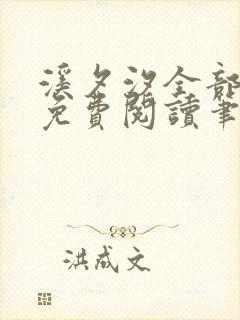 溪夕汐全部
免費閱讀筆
洪成文